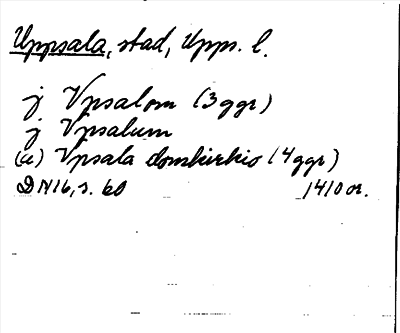 Uppsala, stad, Upps. l.
j Vpsalom (3 ggr)
j Vpsalum
(a) Vpsala domkirkio (4 ggr)
DN16, s. 60 1410 or.